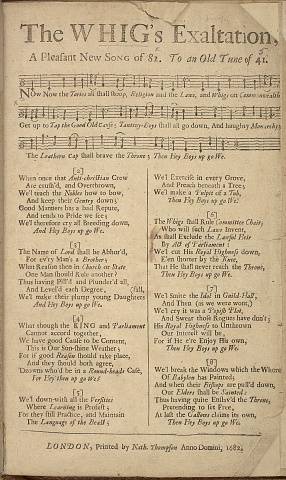 The WHIG's Exaltation,
A Pleasant New SONG of 82. To an Old Tune of 41.
Now Now the Tories all shall stoop, Religion and the Laws, and Whigs on Commonwealth
Get up to Tap the Good Old Cause; Tantivy-Boys shall all go down, and haughty Monarchy;
The Leathern Cap shall brave the Throne; Then Hey Boys up go We.
[2]
When once that Anti-christian Crew
Are crush'd, and Overthrown,
We'l teach the Nobles how to bow,
And keep their Gentry down;
Good Manners has a bad Repute,
And tends to Pride we see;
We'l therefore cry all Breeding down,
And Hey Boys up go We.
[3]
The Name of Lord shall be Abhor'd,
For ev'ry Man's a Brother;
What Reason then in Church or State
One Man should Rule another?
Thus having Pill'd and Plunder'd all,
And Levell'd each Degree,
We'l make their plump young Daughters fall,
And Hey Boys up go We.
[4]
What though the KING and Parliament
Cannot accord together,
We have good Cause to be Content,
This is Our Sun-shine Weather;
For if good Reason should take place,
And they should both agree,
Dzowns who'd be in a Round-heads Case,
For Hey then up go We?
[5]
We'l down with all the Versities
Where Learning is Profest;
For they still Practice, and Maintain
The Language of the Beast;
We'l Exercise in every Grove,
And Preach beneath a Tree;
We'l make a Pulpit of a Tub,
Then Hey Boys up go We.
[6]
The Whigs shall Rule Committee Chair;
Who will such Laws Invent,
As shall Exclude the Lawful Heir
By Act of Parliament;
We'l cut His Royal Highness down,
E'en shorter by the Knee,
That He shall never reach the Throne,
Then Hey Boys up go We.
[7]
We'l Smite the Idol in Guild-Hall,
And Then (as we were wont)
We'l cry it was a Popish Plot,
And Swear those Rogues have don't;
His Royal Highness to Unthrown
Our Interest will be,
For if He e're Enjoy His own,
Then Hey Boys up go We.
[8]
We'l break the Windows which the Whore
Of Babylon has Painted;
And when their Bishops are pull'd down,
Our Elders shall be Sainted:
Thus having quite Enslav'd the Throne,
Pretending to Set Free,
At last the Gallows claims its own,
Then Hey Boys up go We.
LONDON, Printed by Nath. Thompson Anno Domini, 1682.